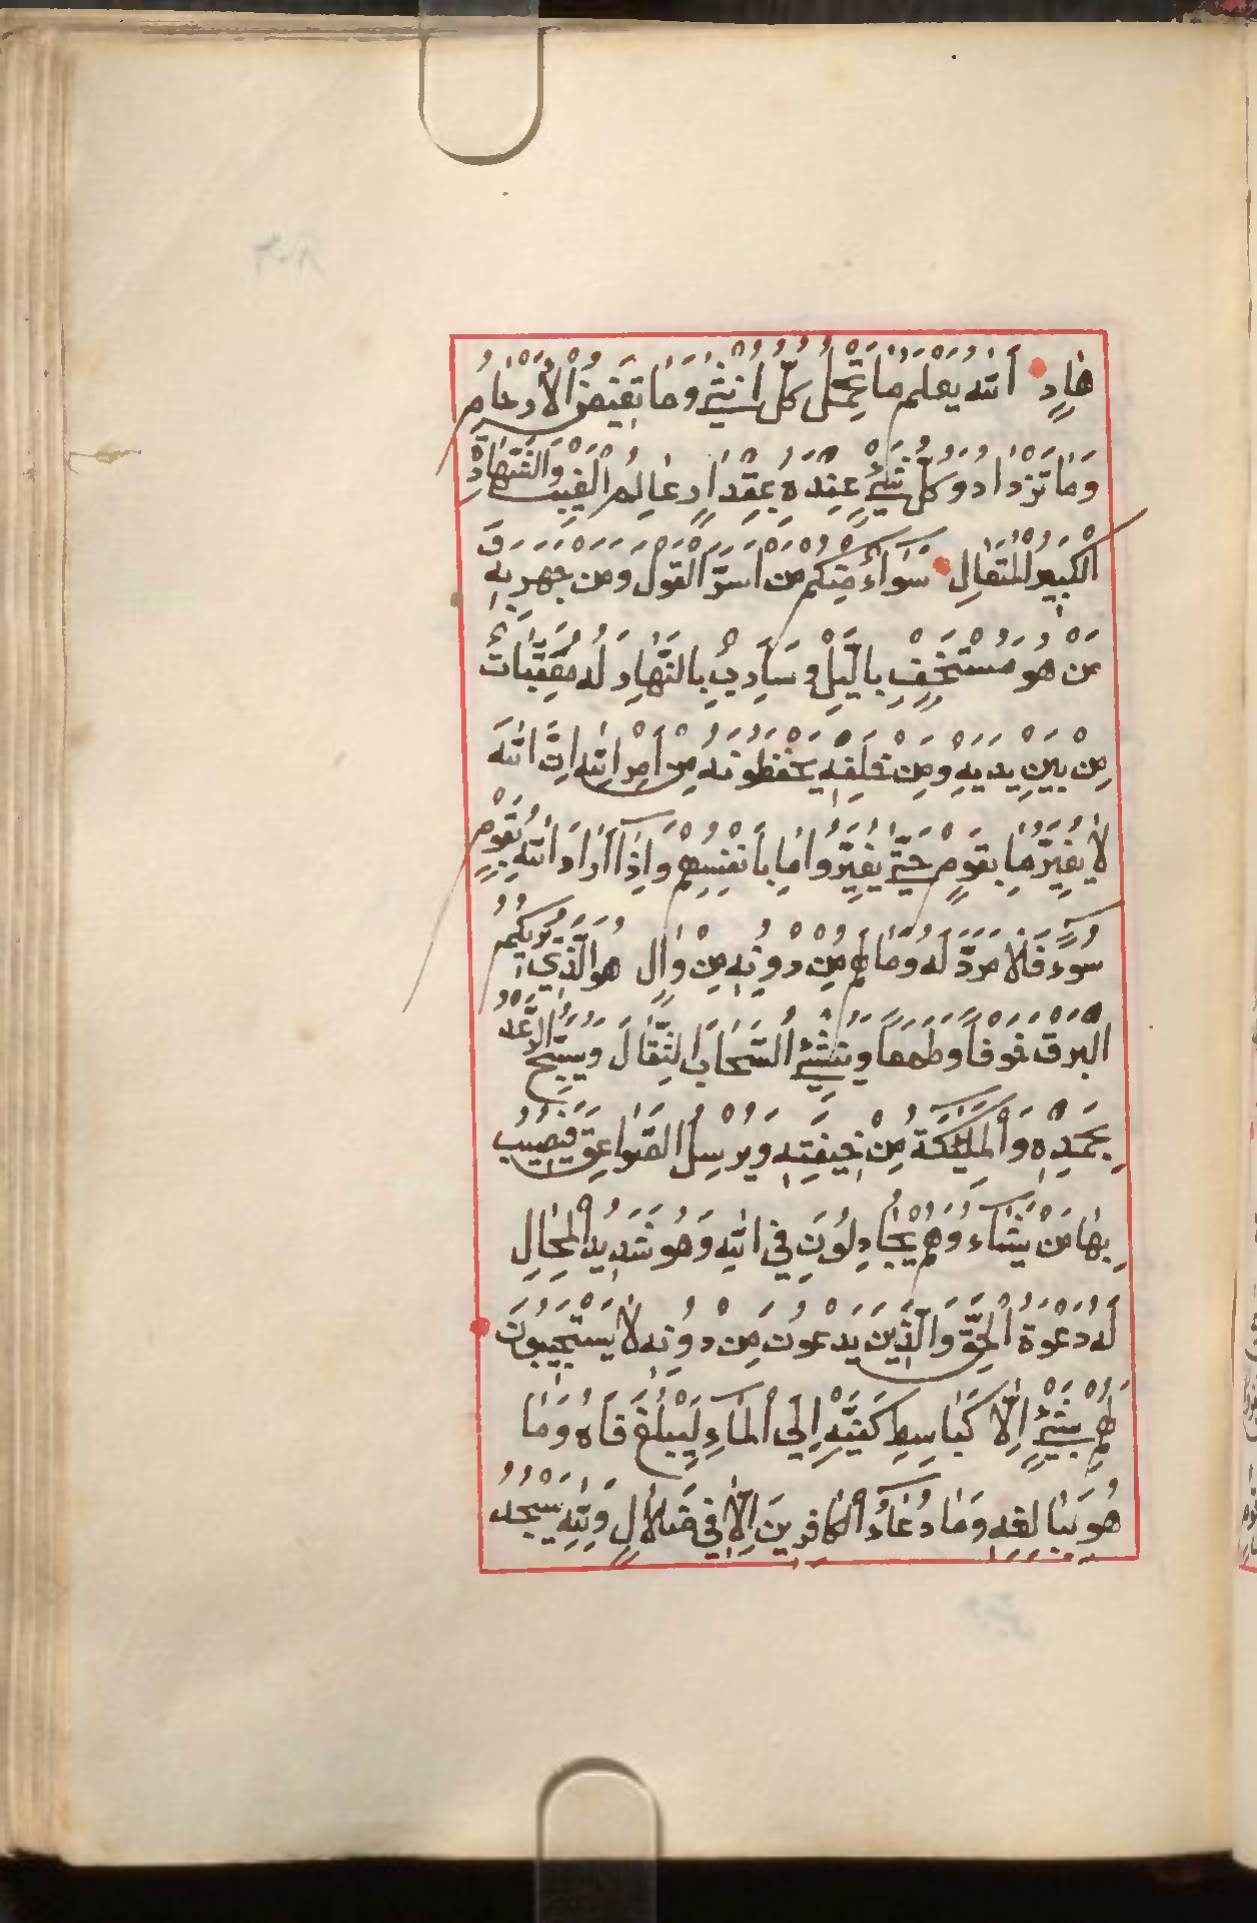 هَادٍ اَللّٰهُ يَعْلَمُ مَا تَحْمِلُ كُلُّ اُنْثٰى وَمَا تَغِيْضُ الْاَرْحَامُ
وَمَا تَزْدَادُ وَكُلُّ شَيْءٍ عِنْدَهُ بِمِقْدَارٍ عَالِمُ الْغَيْبِ وَالشَّهَادَةِ
الْكَبِيْرُ الْمُتَعَالِ سَوَآءٌ مِنْكُمْ مَنْ اَسَرَّ الْقَوْلَ وَمَنْ جَهَرَ بِهِ وَ
مَنْ هُوَ مُسْتَخْفٍ بِالَّيْلِ وَسَارِبٌ بِالنَّهَارِ لَهُ مُعَقِّبَاتٌ
مِنْ بَيْنِ يَدَيْهِ وَمِنْ خَلْفِهِ يَحْفَظُوْنَهُ مِنْ اَمْرِ اللّٰهِ اِنَّ اللّٰهَ
لَا يُغَيِّرُ مَا بِقَوْمٍ حَتّٰى يُغَيِّرُوْا مَا بِاَنْفُسِهِمْ وَاِذَا اَرَادَ اللّٰهُ بِقَوْمٍ
سُوْٓءً فَلَا مَرَدَّ لَهُ وَمَا لَهُمْ مِنْ دُوْنِهِ مِنْ وَالٍ هُوَ الَّذِيْ يُرِيْكُمُ
الْبَرْقَ خَوْفًا وَطَمَعًا وَيُنْشِئُ السَّحَابَ الثِّقَالَ وَيُسَبِّحُ الرَّعْدُ
بِحَمْدِهِ وَالْمَلٰٓئِكَةُ مِنْ خِيْفَتِهِ وَيُرْسِلُ الصَّوَاعِقَ فَيُصِيْبُ
بِهَا مَنْ يَشَآءُ وَهُمْ يُجَادِلُوْنَ فِي اللّٰهِ وَهُوَ شَدِيْدُ الْمِحَالِ
لَهُ دَعْوَةُ الْحَقِّ وَالَّذِيْنَ يَدْعُوْنَ مِنْ دُوْنِهِ لَا يَسْتَجِيْبُوْنَ
لَهُمْ بِشَيْءٍ اِلَّا كَبَاسِطِ كَفَّيْهِ اِلَى الْمَآءِ لِيَبْلُغَ فَاهُ وَمَا
هُوَ بِبَالِغِهِ وَمَا دُعَآءُ الْكَافِرِيْنَ اِلَّا فِيْ ضَلَالٍ وَلِلّٰهِ يَسْجُدُ